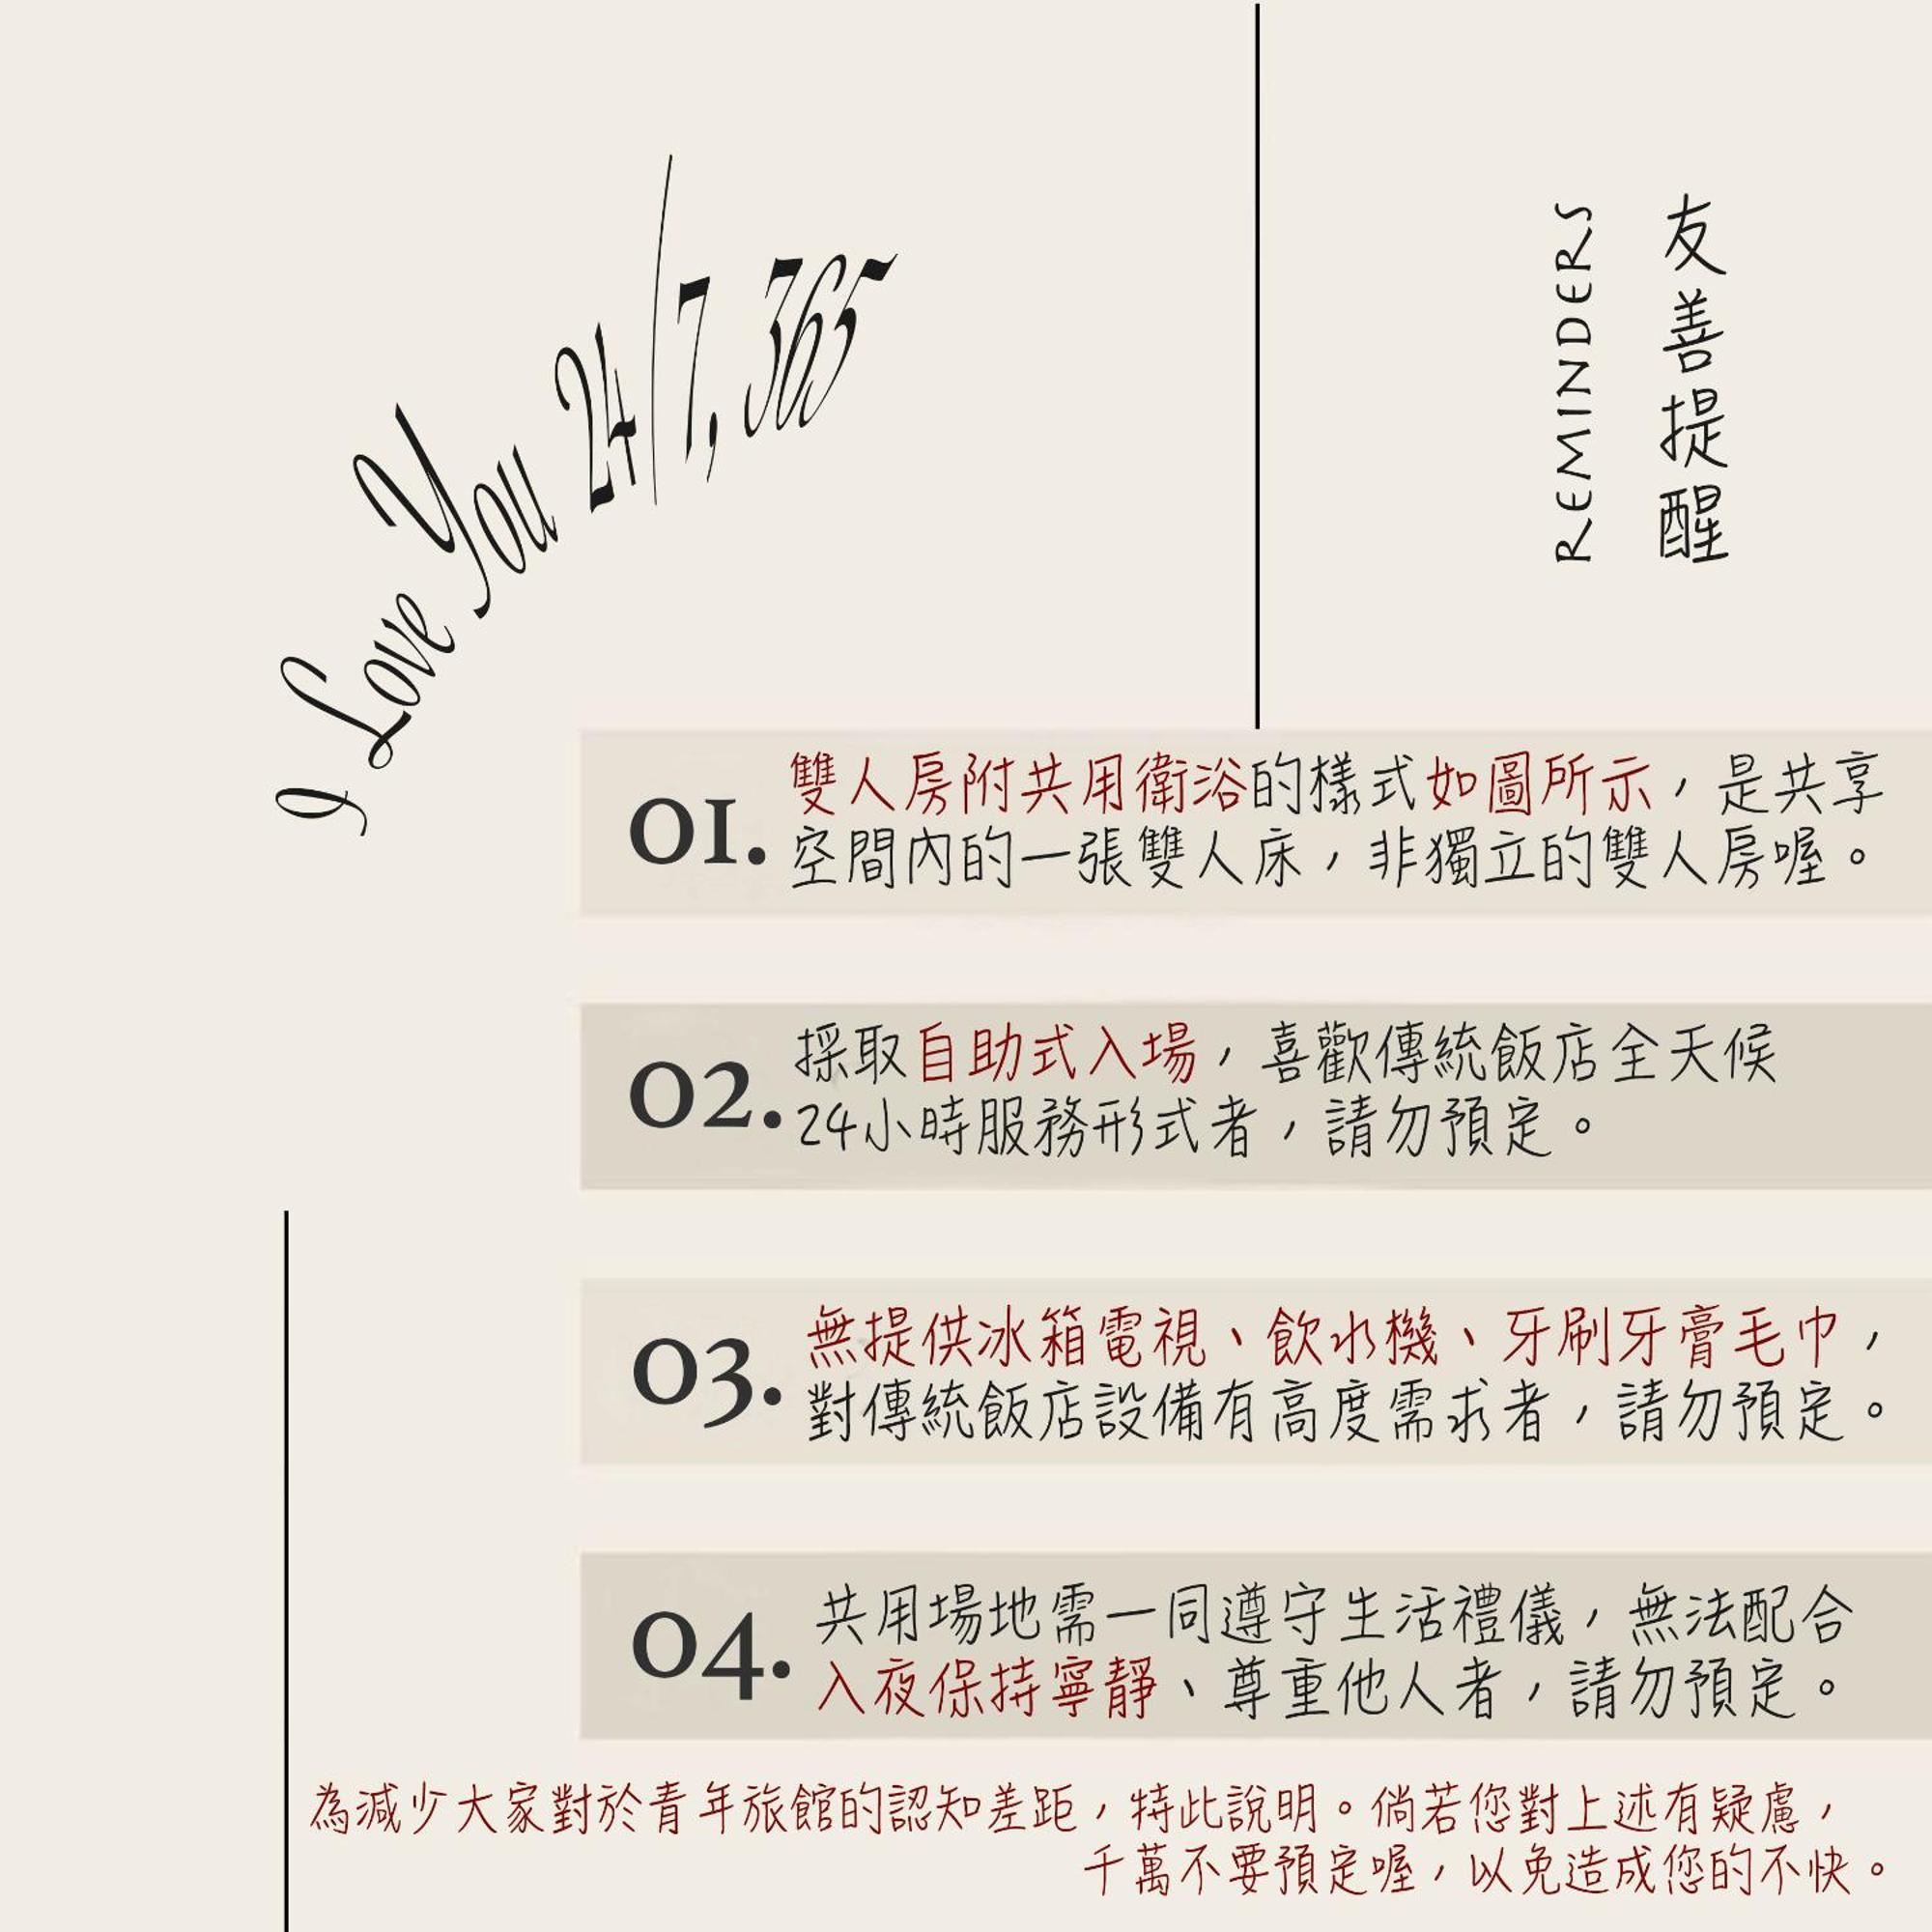 I Love You 24/7, 365
友善提醒
REMINDERS
01.
雙人房附共用衛浴的樣式如圖所示，是共享
空間內的一張雙人床，非獨立的雙人房喔。
02.
採取自助式入場，喜歡傳統飯店全天候
24小時服務形式者，請勿預定。
03.
無提供冰箱電視、飲水機、牙刷牙膏毛巾，
對傳統飯店設備有高度需求者，請勿預定。
04.
共用場地需一同遵守生活禮儀，無法配合
入夜保持寧靜、尊重他人者，請勿預定。
為減少大家對於青年旅館的認知差距，特此說明。倘若您對上述有疑慮，
千萬不要預定喔，以免造成您的不快。